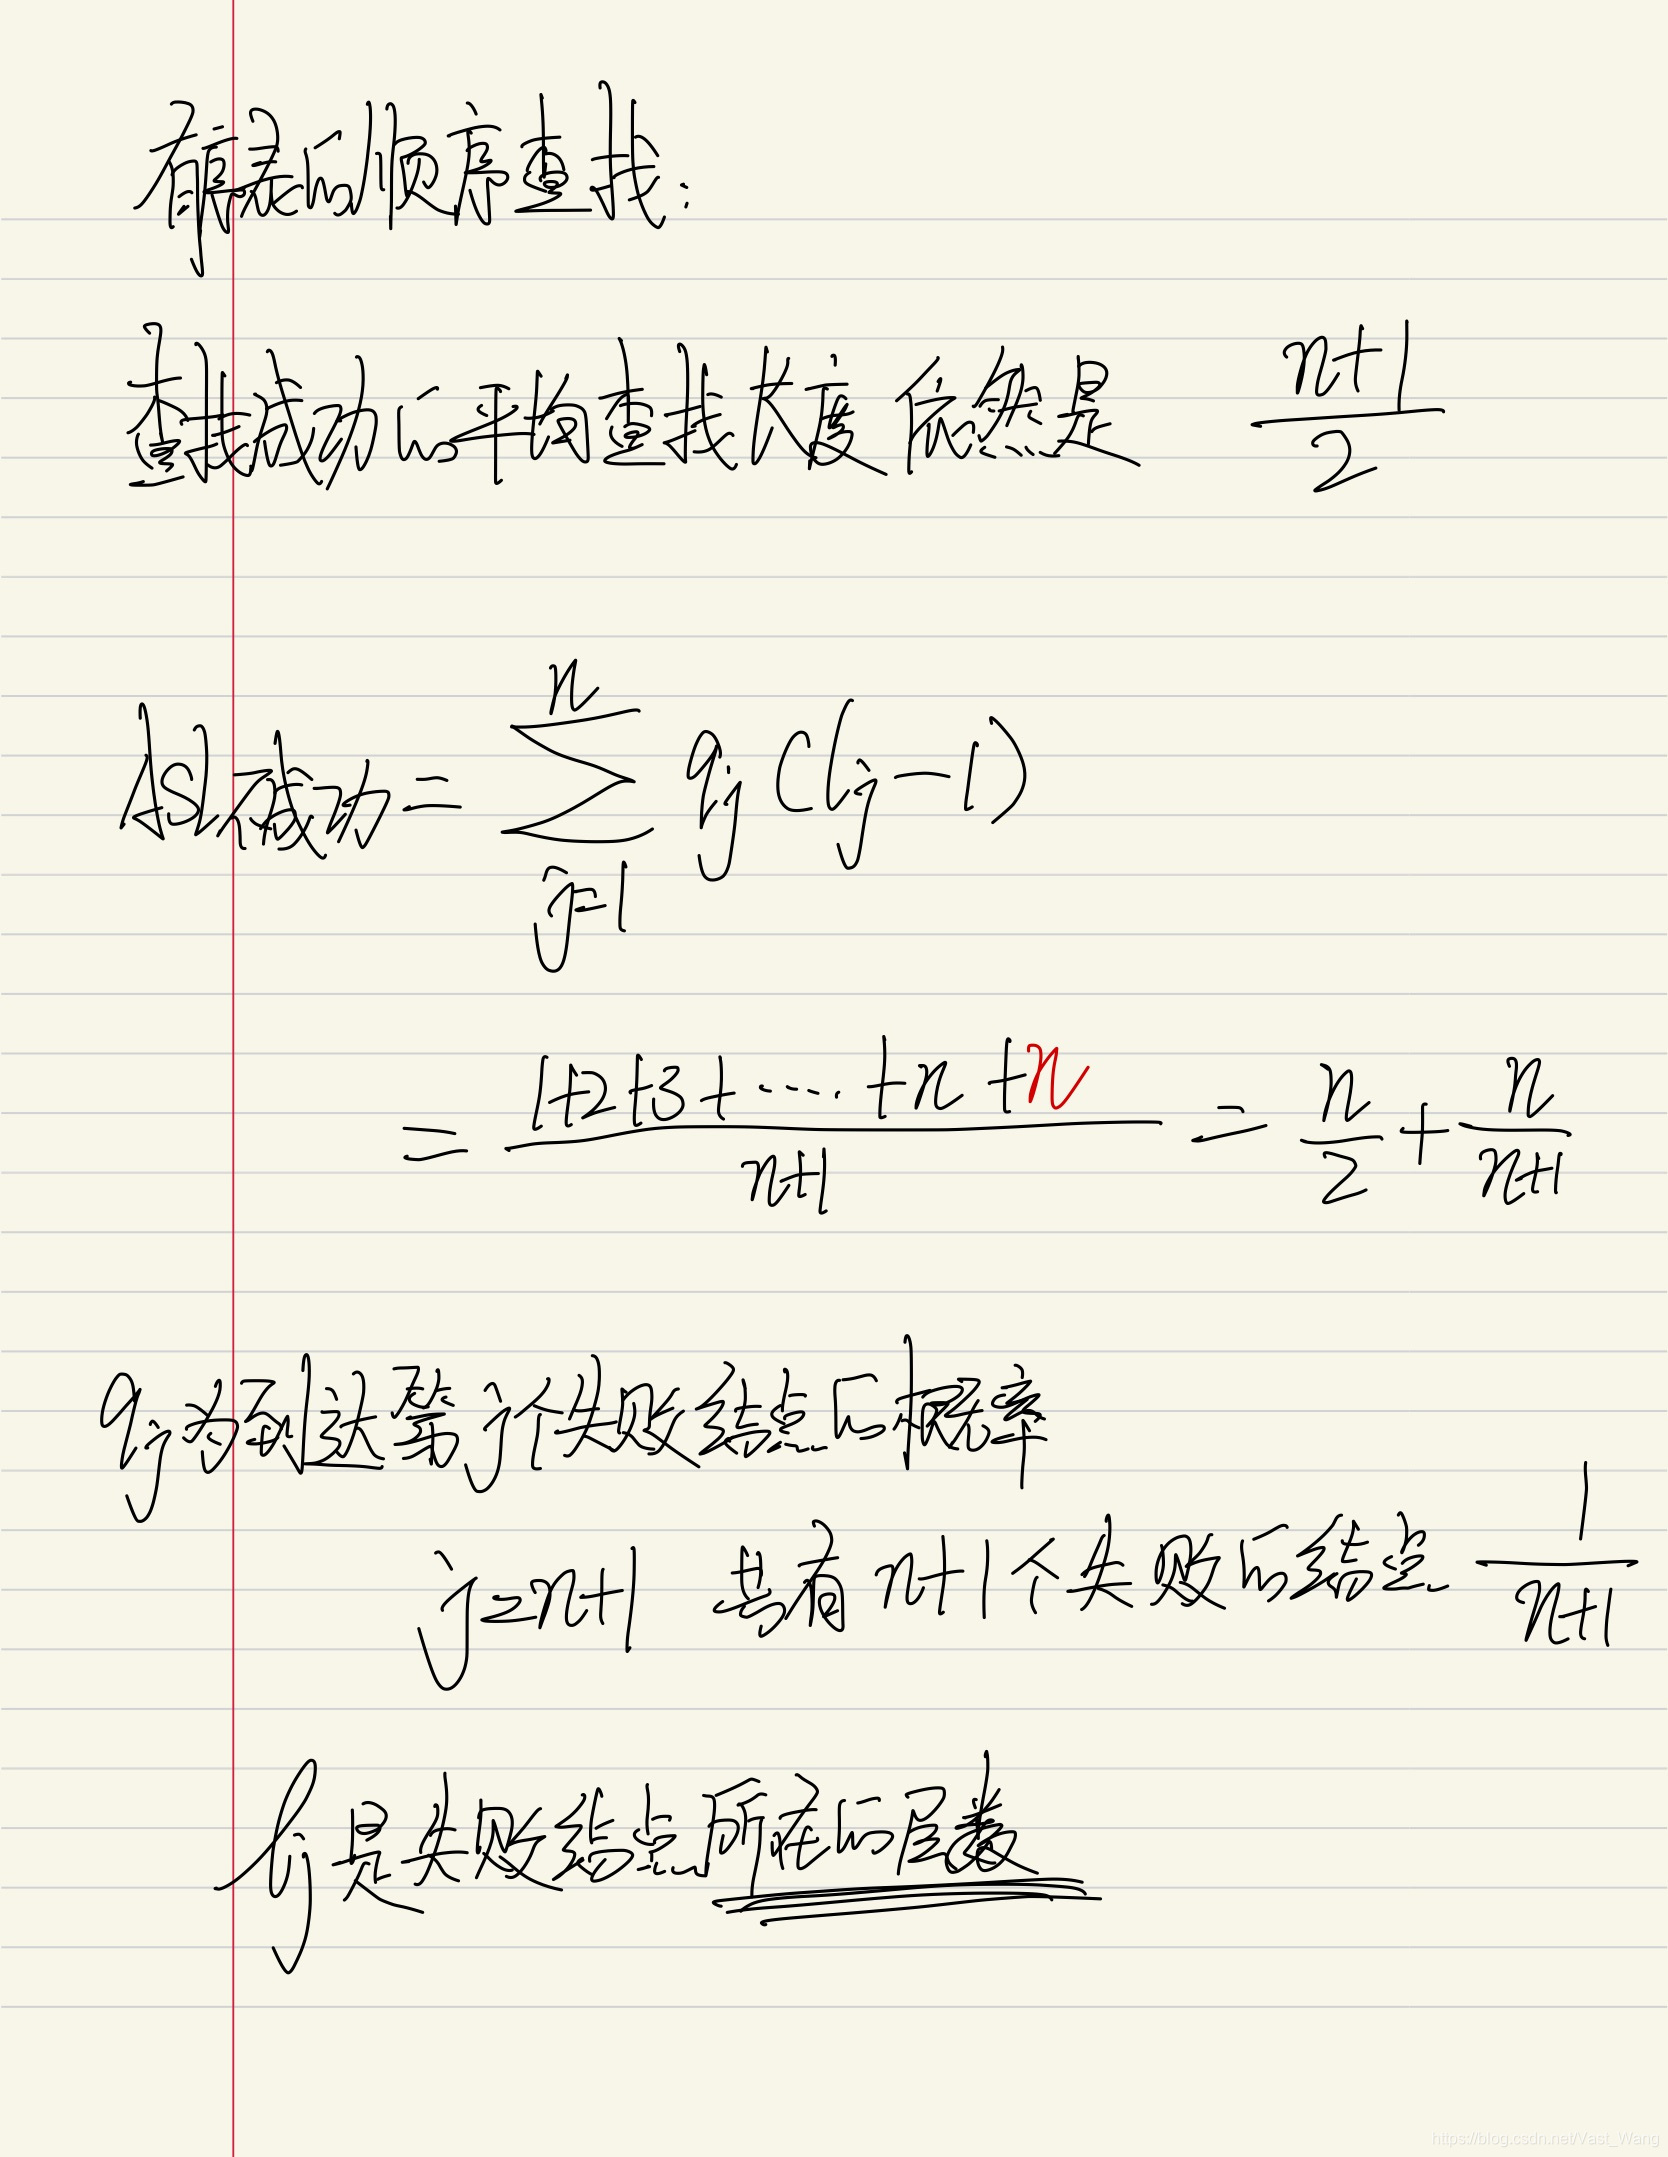 有序表的顺序查找:
查找成功的平均查找长度依然是 \frac{n+1}{2}
ASL不成功 = \sum_{j=1}^{n} q_j (l_j - 1)
= \frac{1+2+3+ \cdots + n + n}{n+1} = \frac{n}{2} + \frac{n}{n+1}
q_j为到达第j个失败结点的概率
j=n+1 共有n+1个失败的结点 \frac{1}{n+1}
l_j是失败结点所在的层数
https://blog.csdn.net/Vast_Wang